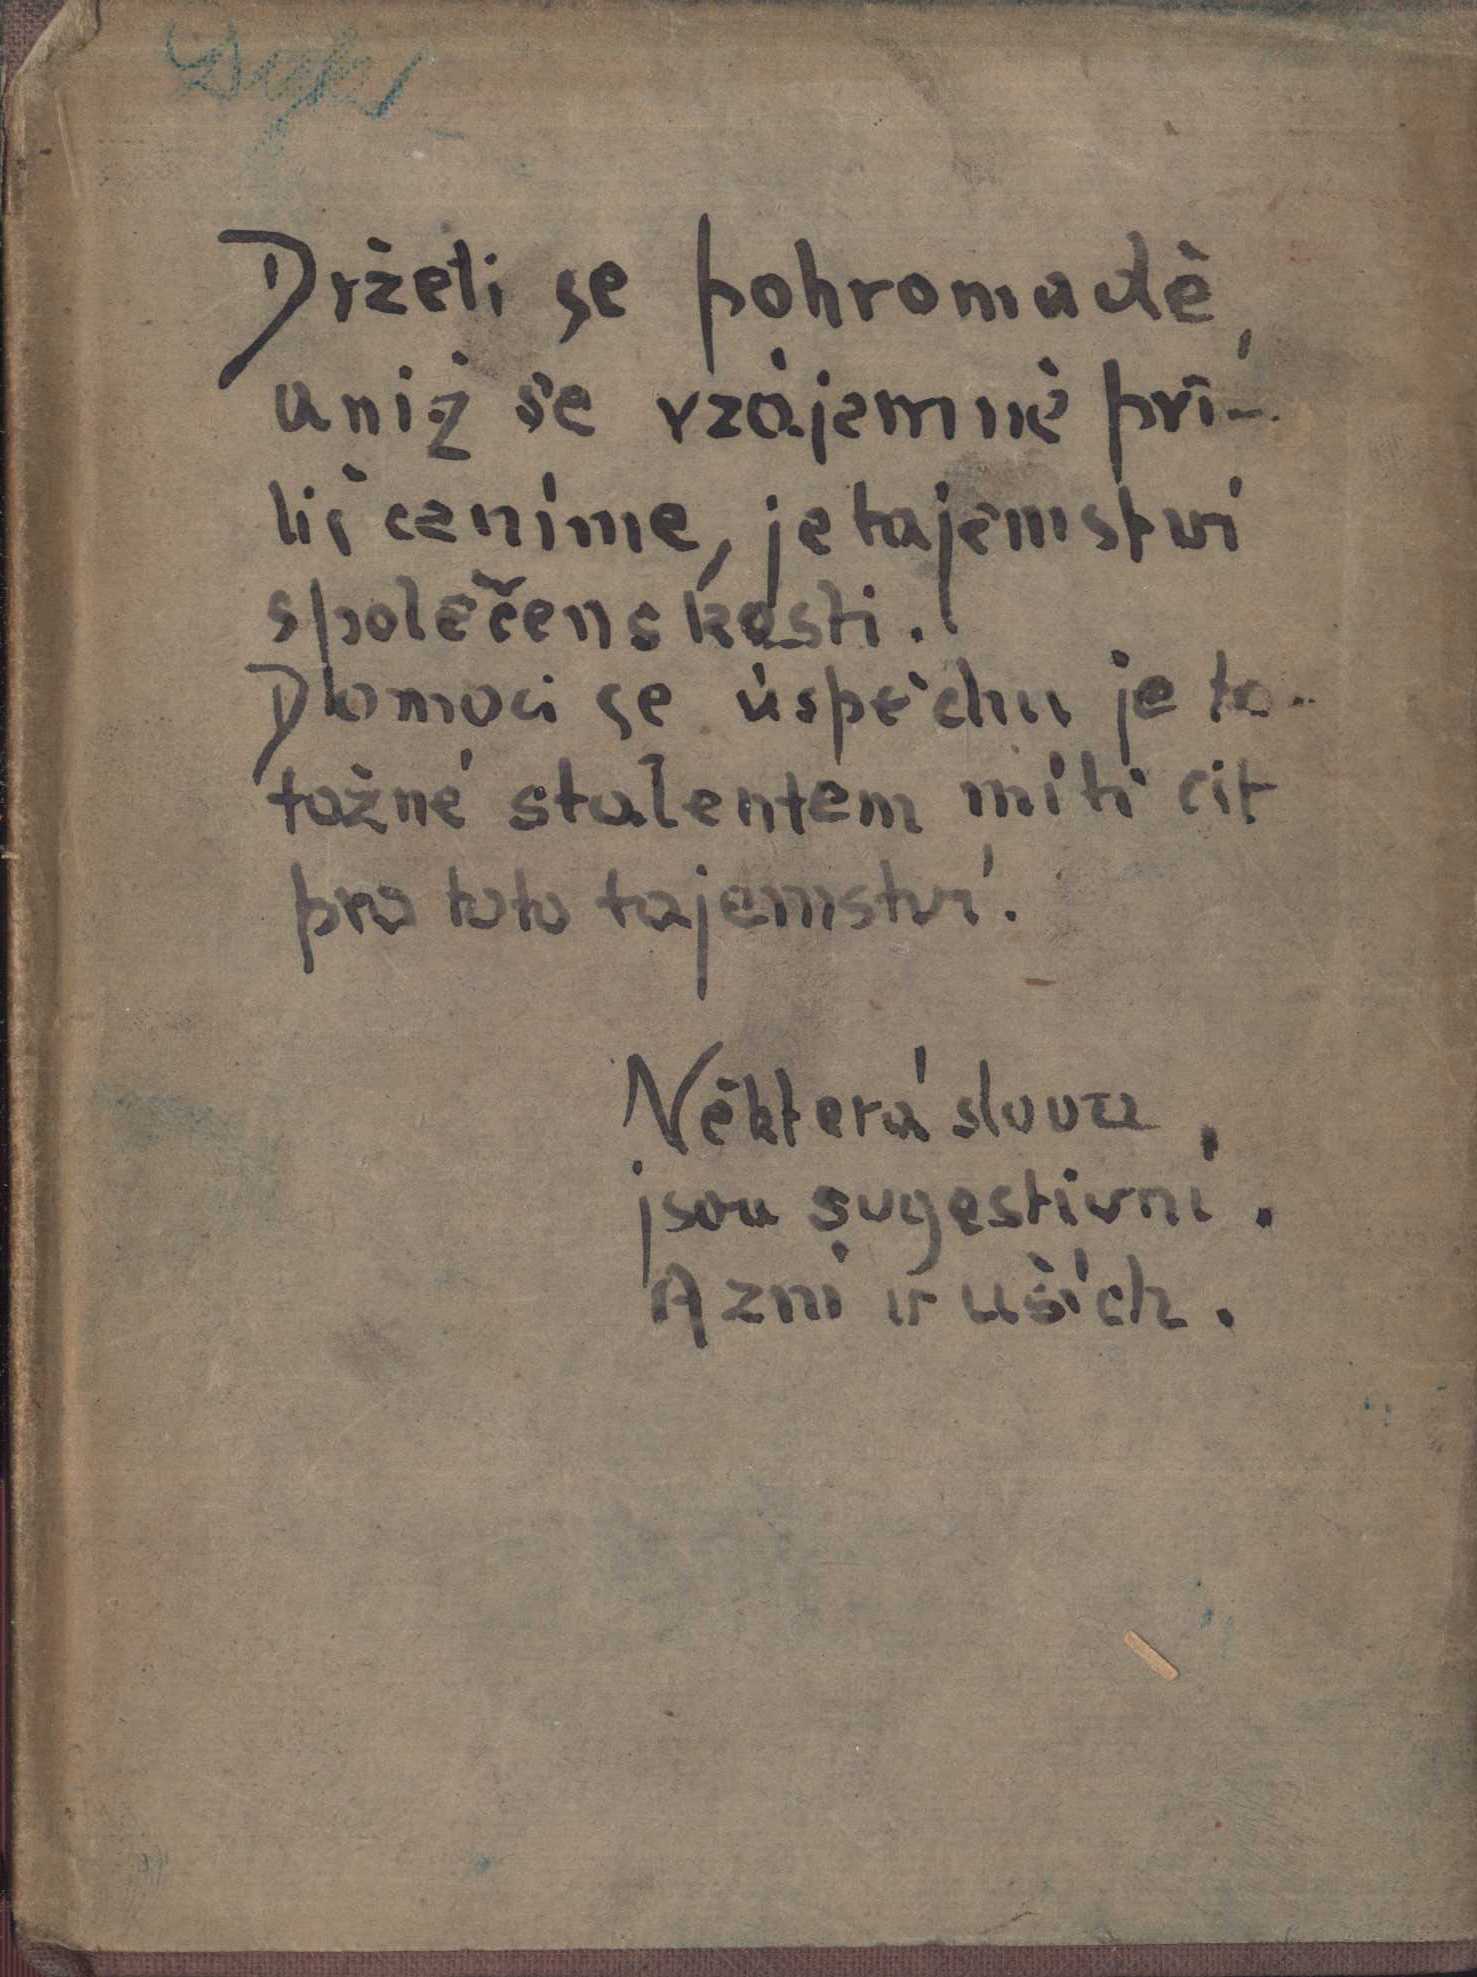 Držeti se pohromadě,
aniž se vzájemně pří-
liš ceníme, je tajemství
společenskosti.
Domoci se úspěchu je to-
tožné s talentem míti cit
pro toto tajemství.
Některá slova
jsou sugestivní.
A zní v uších.